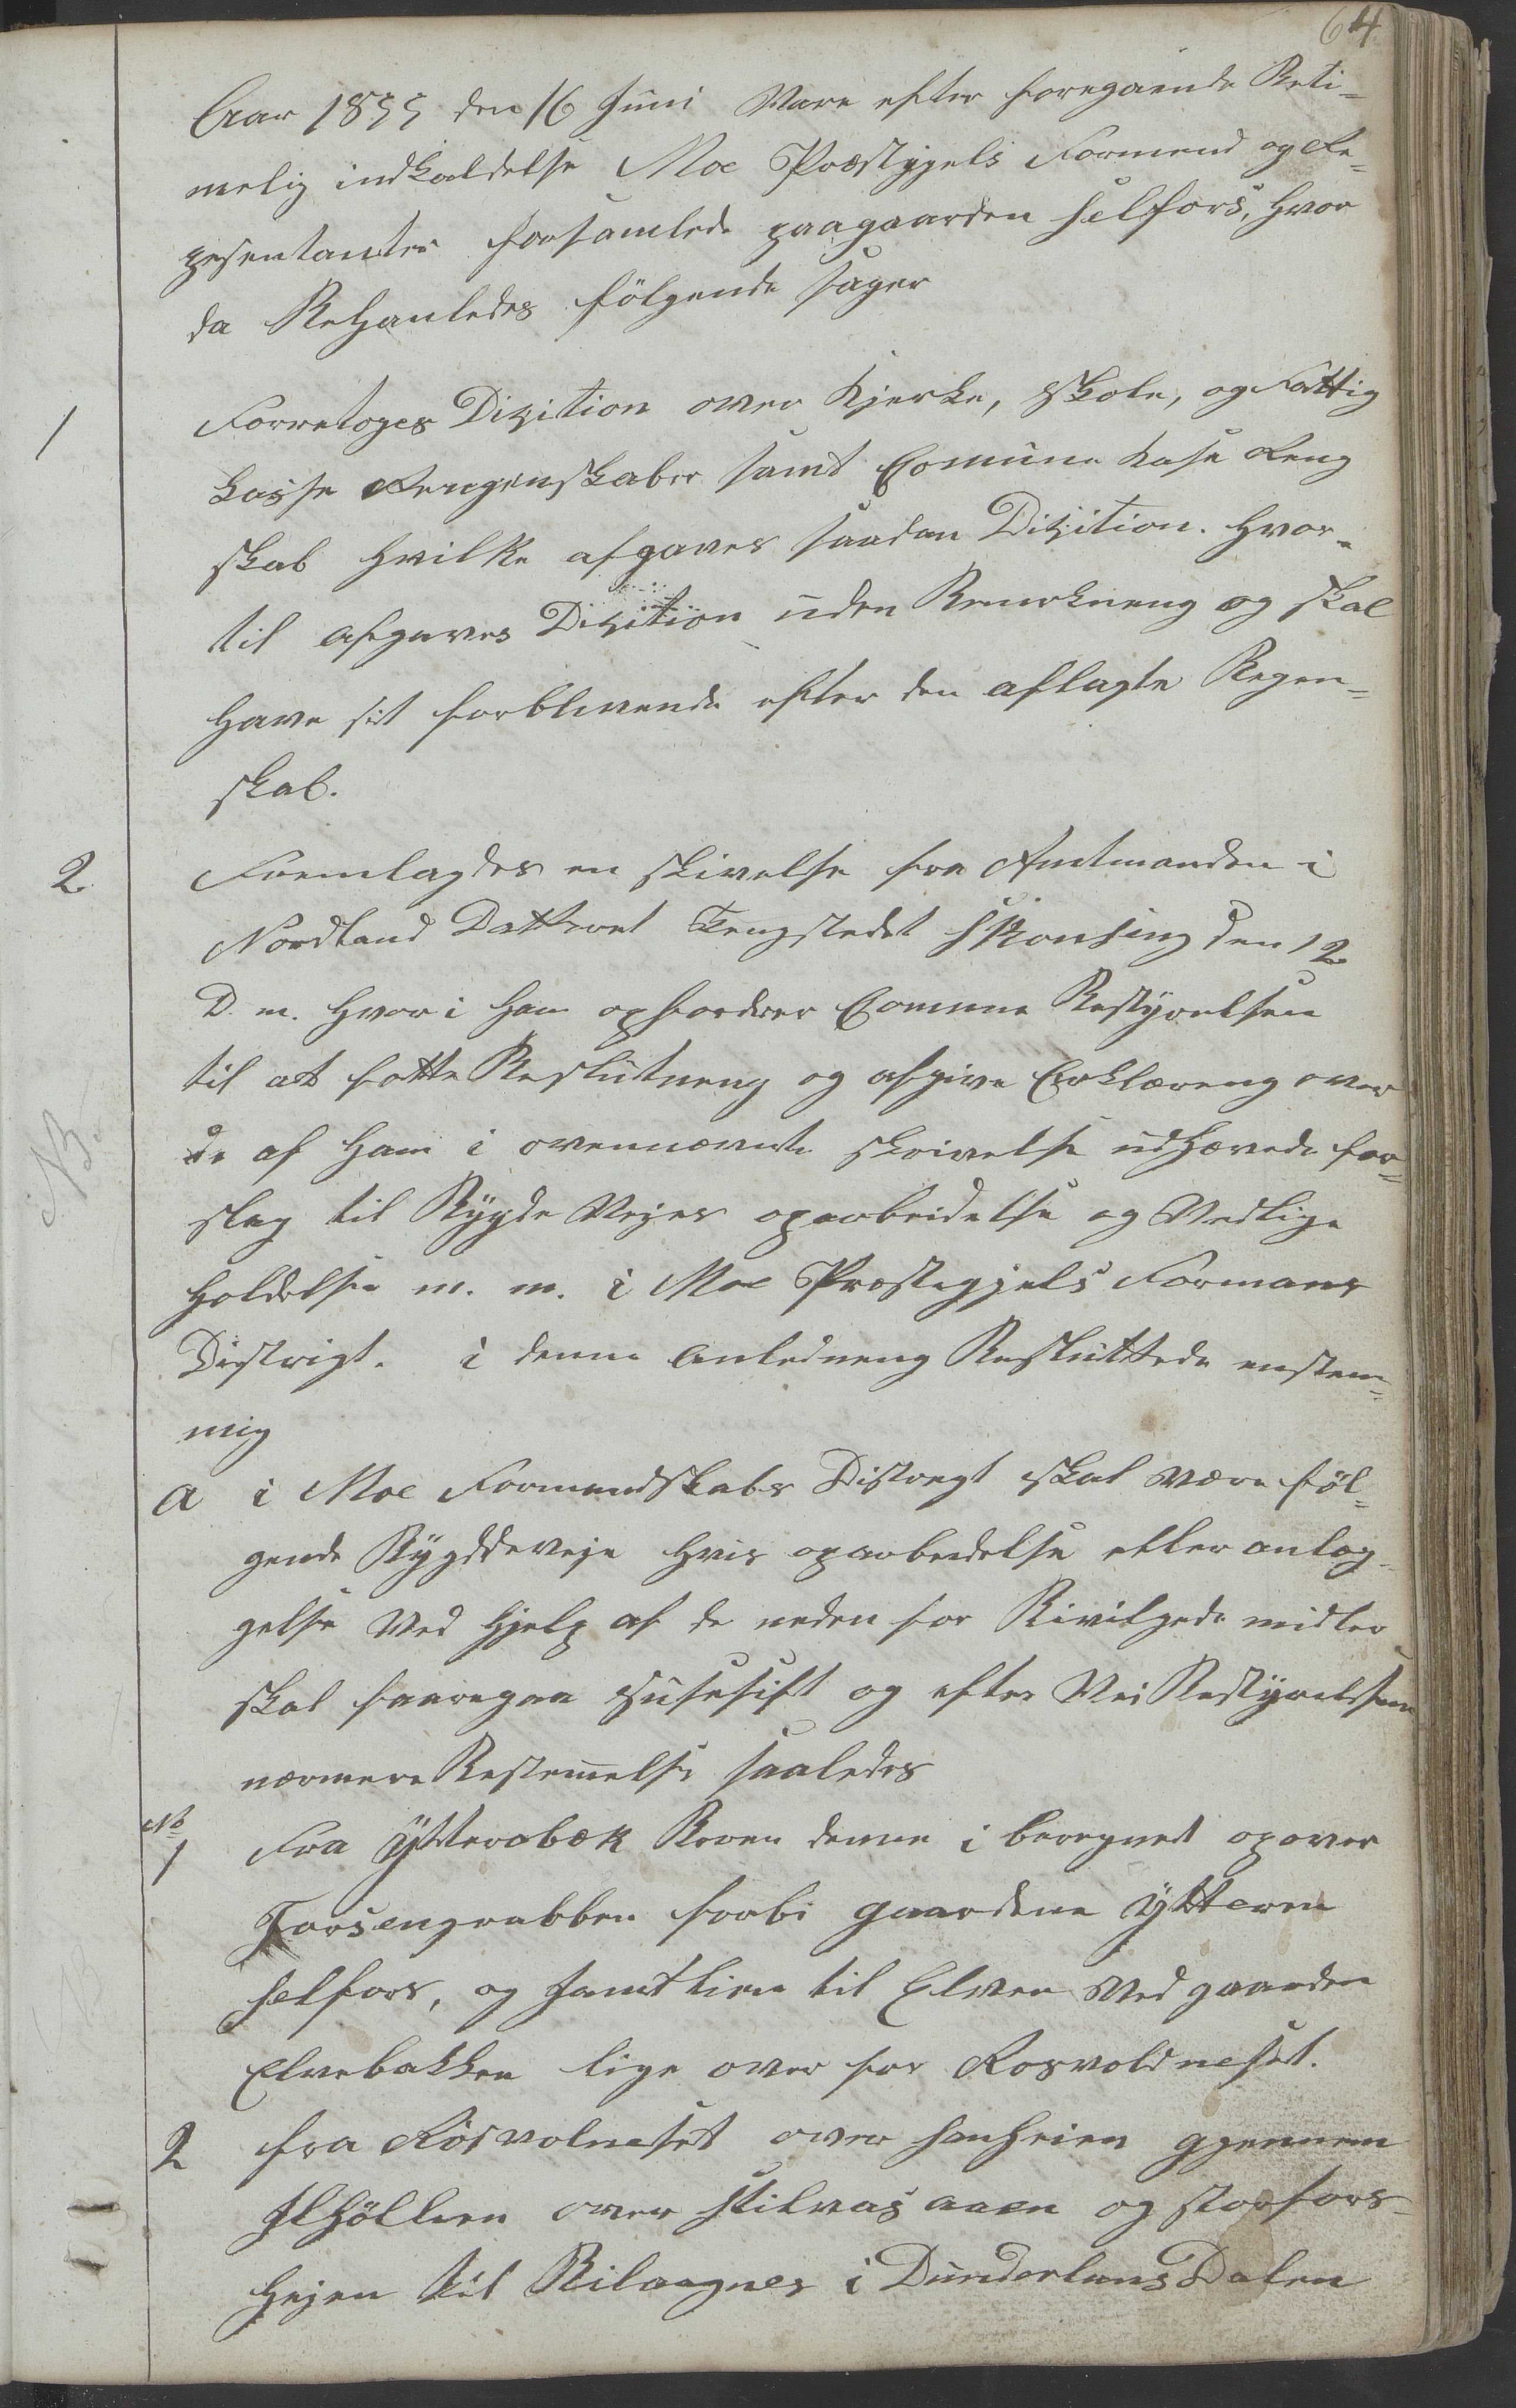 64
Aar 1855 den 16 Juni Vare efter foregaaende Beti-
melig indkaldelse Moe Præstgjels Formend og Re-
presentanter forsamlede paagaarden Selfors, hvor
da Behanledes følgende sager
1 Forretoges Disition over Kjerke, Skole, og Fattig
kasse Rengenskaber samt Comune Kase Reng
skab hvilke afgaves saadan Disition. hvor-
til afgaves Disition uden Bemerkneng og skal
have sit forblivende efter den aflagte Regen-
skab.
2 Fremlagdes en skivelse fra Amtmanden i
Nordland Dateret Tengstedet Skonseng den 12
D. m. hvor i han opfordrer Comune Bestyrelsen
til at fatte Beslutneng og afgive Erklæreng over
NB de af ham i ovennævnte skrivelse udhævede for-
slag til Bygde Vejes oparbeidelse og Vedlige
holdelse m. m. i Moe Prestegjels Formans
Distrigt. i denne anledneng Besluttede enstem-
mig
a i Moe Formendskabs Distregt skal være føl-
gende Bygddeveje hvis oparbeidelse eller anlæg-
gelse Ved hjelp af de neden for Bivilgede midler
skal foregaa susesift og efter Vei Bestyrelsens
nærmere Bestemelse saaledes
No
1 Fra Ytterabæk Broen denne i beregnet op over
Forsengrabben forbi gaardene Ytteren
Selfors, og Jamtlien til Elven Ved gaarden
Elvebakken lige over for Rosvoldneset.
2 fra Røsvolneset over gjennem
Ilhøllien over Stilvas aaen og Storfors-
hejen til Bilaagnes i Dunderlans Dalen